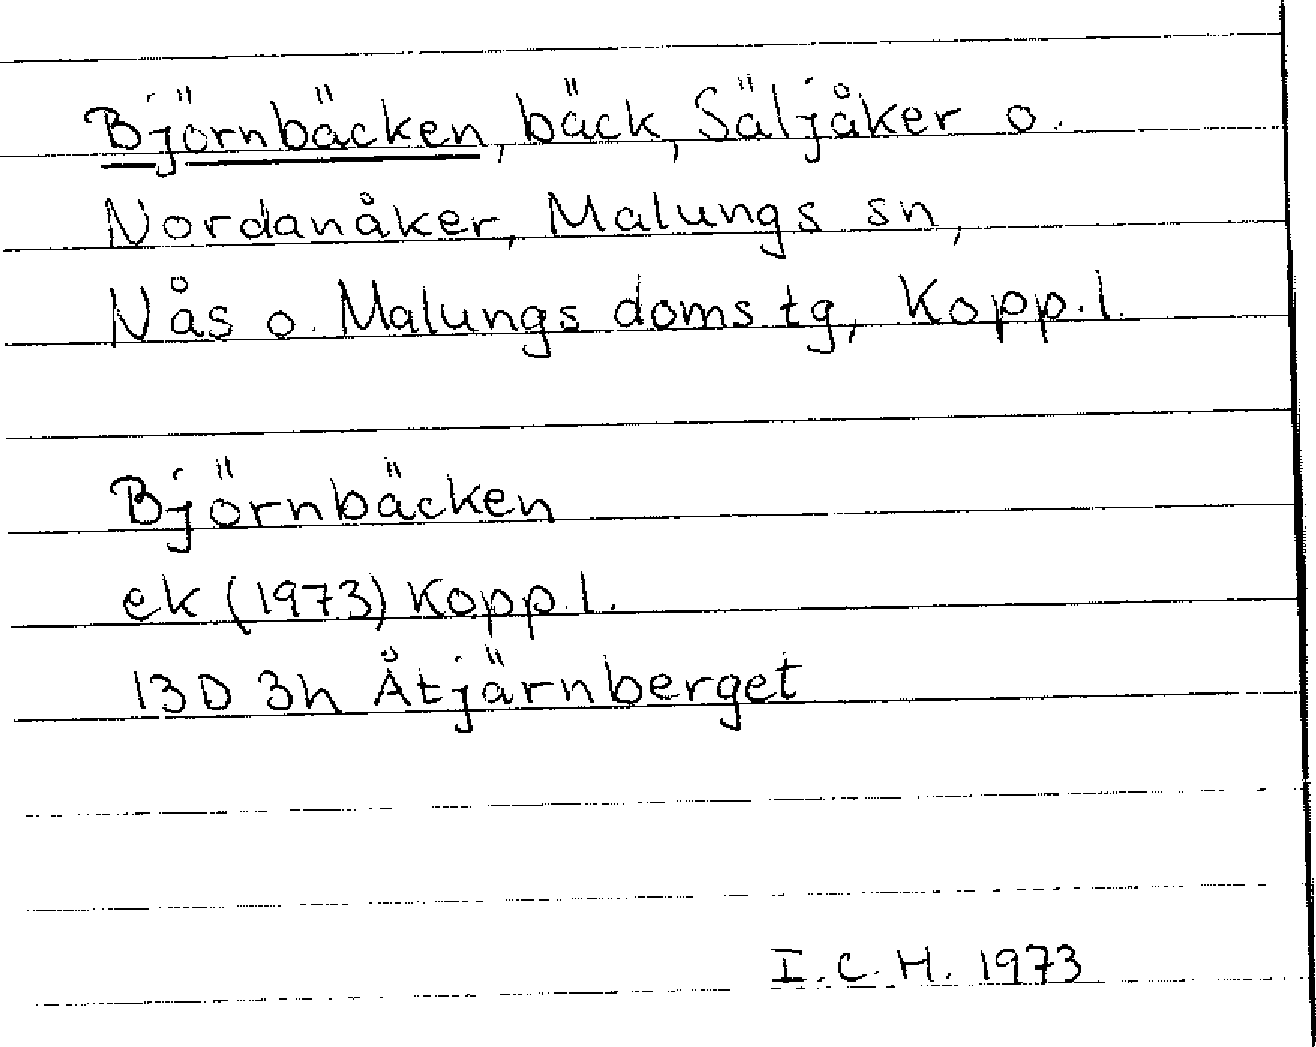 Björnbäcken, bäck, Säljåker o.
Nordanåker, Malungs sn,
Nås o. Malungs domstg, Kopp.l.
Björnbäcken
ek (1973) Kopp.l.
13D 3h Åtjärnberget
I.C.H. 1973